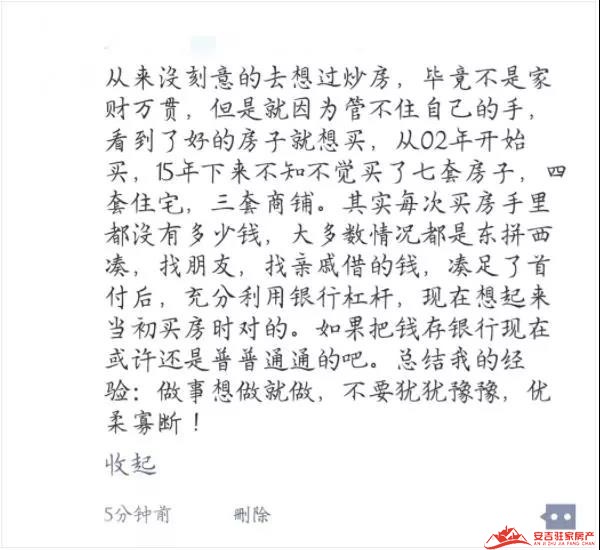 从来没刻意的去想过炒房，毕竟不是家
财万贯，但是就因为管不住自己的手，
看到了好的房子就想买，从02年开始
买，15年下来不知不觉买了七套房子，四
套住宅，三套商铺。其实每次买房手里
都没有多少钱，大多数情况都是东拼西
凑，找朋友，找亲戚借的钱，凑足了首
付后，充分利用银行杠杆，现在想起来
当初买房时对的。如果把钱存银行现在
或许还是普普通通的吧。总结我的经
验：做事想做就做，不要犹犹豫豫，优
柔寡断！
收起
5分钟前 删除
安吉驻家房产
AN JI ZHU JIA FANG CHAN